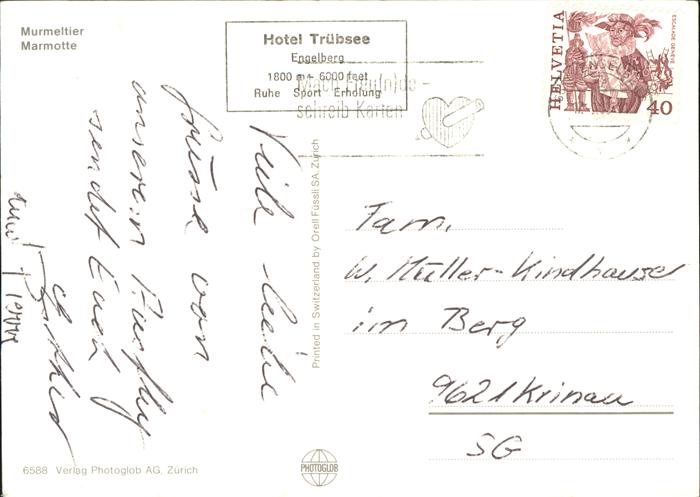 Murmeltier
Marmotte
Hotel Trübsee
Engelberg
1800 m + 6000 feet
Ruhe Sport Erholung
Mach Freu(n)de -
schreib Karten
HELVETIA
ESCALADE GENÈVE
40
Viele liebe
Grüsse von
unserem Ausflug
sendet Euch
Fam.
W. Müller-Kindhauser
im Berg
9621 Krinau
SG
Printed in Switzerland by Orell Füssli SA, Zürich
6588 Verlag Photoglob AG, Zürich
PHOTOGLOB